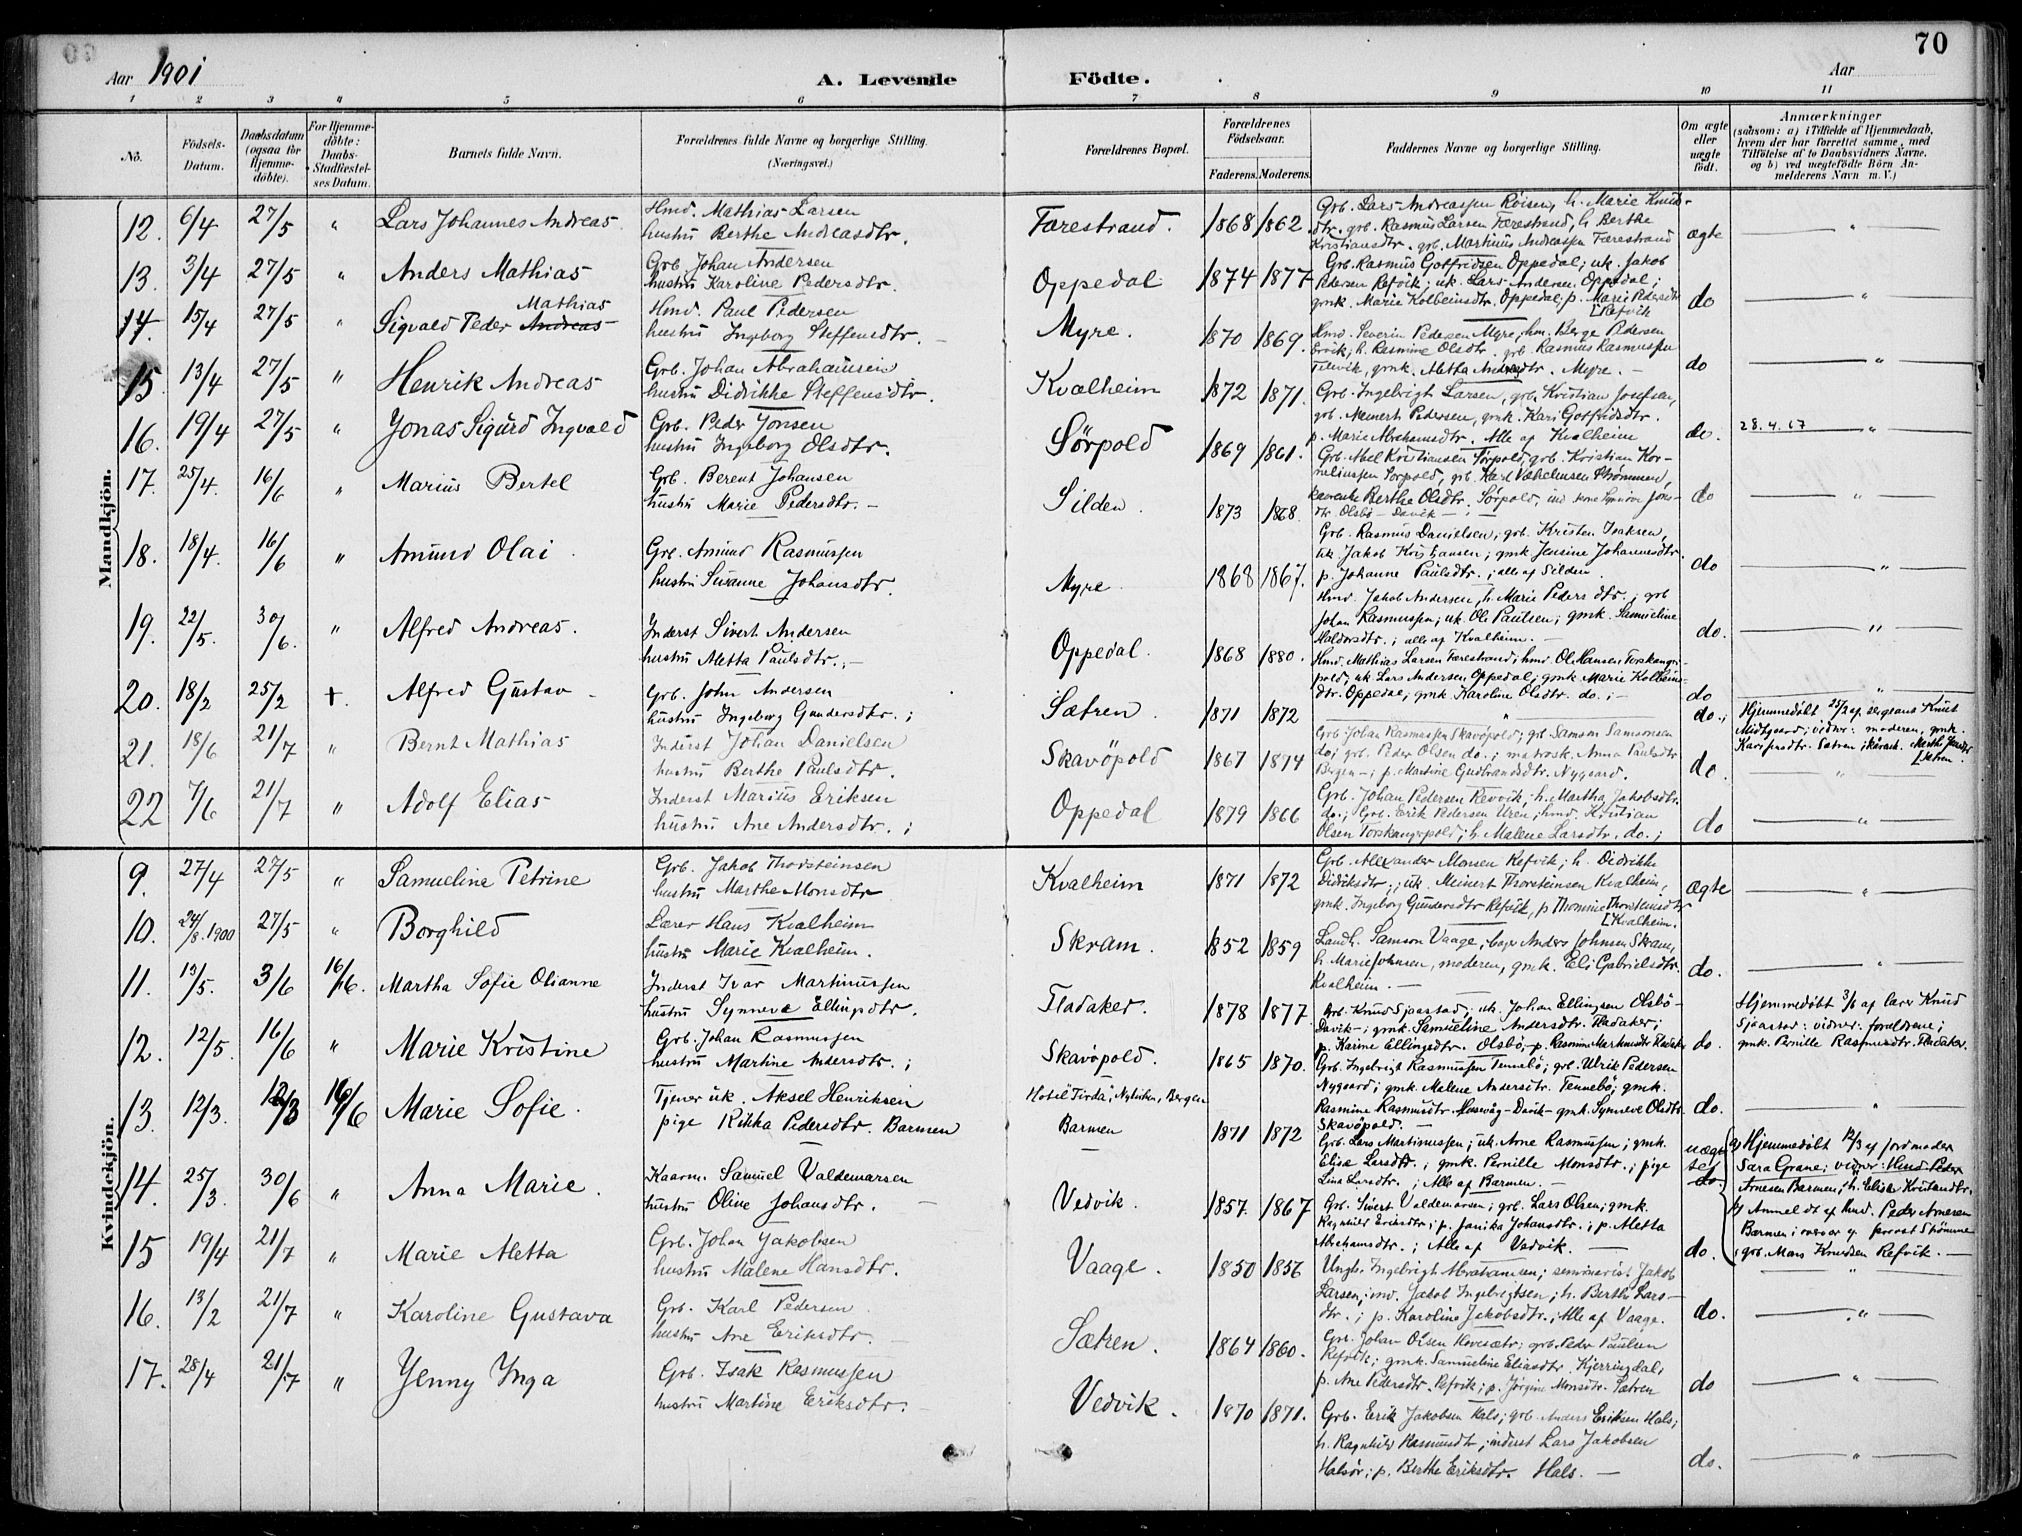 70
Aar 1901
A. Levende Födte.
Aar
1 2 3 4 5 6 7 8 9 10 11
No.
Födsels-Datum.
Daabsdatum (ogsaa for Hjemme-döbte).
For Hjemme-döbte: Daabs-Stadfæstel-ses Datum.
Barnets fulde Navn.
Forældrenes fulde Navne og borgerlige Stilling.
(Næringsvei.)
Forældrenes Bopæl.
Forældrenes Födselsaar.
Faderens. Moderens.
Faddernes Navne og borgerlige Stilling.
Om ægte eller uægte födt.
Anmærkninger
(saasom: a) i Tilfælde af Hjemmedaab, hvem der har forrettet samme, med Tilföielse af to Daabsvidners Navne, og b) ved uægtefödte Börn An-melderens Navn m. V.)
Mandkjön.
12. 6/4 27/5 " Lars Johannes Andreas
Hmd. Mathias Larsen
hustru Berthe Andreasdtr.
Færestrand. 1868 1862.
Grb. Lars Andreassen Röisen, h. Marie Knuds-
dtr. grb. Rasmus Larsen Færestrand, h. Berthe
Kristiansdtr. grb. Martinus Andreassen Færestrand
ægte "
13. 3/4 27/5 " Anders Mathias
Grb. Johan Andersen
hustru Karoline Pedersdtr.
Oppedal 1874 1877
Grb. Rasmus Gotfridsen Oppedal; uk. Jakob
Pedersen Refvik; uk. Lars Andersen Oppedal;
gmk. Marie Kolbeinsdtr. Oppedal; p. Marie Pedersdtr
[Refvik
do "
14. 15/4 27/5 " Sigvald Peder Andreas Mathias
Hmd. Paul Pedersen
hustru Ingeborg Steffensdtr.
Myre. 1870 1869.
Hmd. Severin Pedersen Myre, hm. Berge Pedersen
Ervik; h. Rasmine Olsdtr. grb. Rasmus Rasmussen
gmk. Aletta Andersdtr. Myre.
do "
15 13/4 27/5 " Henrik Andreas
Grb. Johan Abrahamsen
hustru Didrikke Steffensdtr.
Kvalheim 1872 1871.
Grb. Ingebrigt Larsen, grb. Kristian Josefsen,
grb. Meinert Pedersen, gmk. Kari Gotfridsdtr.
p. Marie Abrahamsdtr. Alle af Kvalheim
do. 28.4.67 "
16. 19/4 27/5 " Jonas Sigurd Ingvald
Grb. Peder Jonsen
hustru Ingeborg Olsdtr.
Sörpold 1869 1861.
Grb. Abel Kristiansen Sörpold, grb. Kristian Kor-
neliussen Sörpold, grb. Karl Strömmen,
Berthe Olsdtr. Sörpold,
dtr. Olsbö - Davik -
do "
17. 25/4. 16/6 " Marius Bertel
Grb. Berent Johansen
hustru Marie Pedersdtr.
Silden 1873 1868
Grb. Rasmus Danielsen; grb. Kristen Isaksen,
uk. Jakob Kristiansen; gmk Jensine Johannesdtr.
p. Johanne Paulsdtr.; alle af Silden.
do "
18. 18/4. 16/6 " Amund Olai
Grb. Amund Rasmussen
hustru Susanne Johansdtr.
Myre 1868 1867.
Hmd. Jakob Andersen, h. Marie Pedersdtr.; grb
Johan Rasmussen; uk. Ole Paulsen; gmk. Samueline
Haldorsdtr.; alle af Kvalheim.
do. "
19. 22/5. 30/6. " Alfred Andreas.
Inderst Sivert Andersen
hustru Aletta Paulsdtr.
Oppedal. 1868 1880.
Hmd. Mathias Larsen Færestrand; hmd. Ol. Hansen Torskanger-
pold; uk. Lars Andersen Oppedal; gmk. Marie Kolbeins-
dtr. Oppedal; gmk Karoline Olsdtr. do.
do "
20. 18/2 25/2 +. Alfred Gustav
Grb. John Andersen
hustru Ingeborg Gundersdtr.;
Sætren. 1871 1872 " do.;
Hjemmedöbt 25/2 af sergeant Knut
Midtgaard; vidner: moderen, gmk.
Kari Sætren
[Sætren.
21. 18/6 21/7 " Bernt Mathias
Inderst Johan Danielsen
hustru Berthe Paulsdtr.
Skavöpold 1867 1874
Grb. Johan Rasmussen Skavöpold; grb Samson Samsonsen
do; grb. Peder Olsen do.; matrosk. Anna Paulsdtr
Bergen; p. Martine Gudbrandsdtr. Nygaard.
do. "
22 7/6 21/7 " Adolf Elias
Inderst Marius Eriksen
hustru Ane Andersdtr.;
Oppedal 1879 1866
Grb. Johan Pedersen Revvik; h. Martha Jakobsdtr.
do.; Grb. Erik Pedersen Uren; hmd. Kristian
Olsen Torskangerpold; h. Malene Larsdtr. do.;
do "
Kvindekjön.
9. 27/4 27/5 " Samueline Petrine
Grb. Jakob Thorsteinsen
hustru Marthe Monsdtr
Kvalheim 1871 1872
Grb. Alexander Monsen Refvik; h. Didrikke
Didriksdtr.; uk. Meinert Thorsteinsen Kvalheim,
gmk. Ingeborg Gundersdtr Refvik, p Thomine Thorsteinsdtr
[Kvalheim.
ægte "
10. 24/8. 1900 27/5 " Borghild
Lærer Hans Kvalheim
hustru Marie Kvalheim.
Skram. 1852 1859
Landh. Samson Vaage, bager Anders Johnsen Skram,
h. Marie Johnsen, moderen, gmk. Eli Gabrielsdtr.
Kvalheim.
do. "
11. 13/5. 3/6 16/6. Martha Sofie Olianne
Inderst Ivar Martinussen
hustru Synneve Ellingsdtr.
Fladaker. 1878 1877
Grb. Knud Sjaastad; uk. Johan Ellingsen Olsbö-
Davik-; gmk. Samueline Andersdtr. Fladaker;
p. Karine Ellingsdtr. Olsbö, p. Rasmine Martinusdtr Fladaker
do.
Hjemmedöbt 3/6 af lærer Knud
Sjaastad: vidner: forældrene;
gmk. Pernille Rasmusdtr. Fladaker.
12. 12/5. 16/6 " Marie Kristine
Grb. Johan Rasmussen
hustru Martine Andersdtr.;
Skavöpold. 1865 1870.
Grb. Ingebrigt Rasmussen Tennebö; grb. Ulrik Pedersen
Nygaard; gmk. Malene Andersdtr. Tennebö; gmk.
Rasmine Rasmusdtr. Husevåg - Davik - gmk. Synneve Olsdtr.
Skavöpold.
do. "
13. 12/3. 12/3 16/6 Marie Sofie.
Tjener uk. Aksel Henriksen
pige Rikka Pedersdtr. Barmen
Hotel Firda, Nykirken, Bergen
Barmen 1871 1872
Grb. Lars Martinussen; uk. Arne Rasmussen; gmk.
Elise Larsdtr.; gmk. Pernille Monsdtr.; pige
Lina Larsdtr.; Alle af Barmen.
uægte
a) Hjemmedöbt 12/3 af jordmoder
Sara Grane; vidner: Hmd. Peder
Arnesen Barmen; h. Elise Kristiandtr.
b) Anmeldt af hmd. Peder Arnesen
Barmen;
grb. Mons Knudsen Refvik.
14. 25/3. 30/6 " Anna Marie.
Kaarm. Samuel Valdemarsen
hustru Oline Johansdtr.
Vedvik. 1857. 1867
Grb. Sivert Valdemarsen; grb. Lars Olsen; gmk.
Ragnhild Eriksdtr; p. Janika Johansdtr.; p. Aletta
Abrahamsdtr.; Alle af Vedvik.
do.
15 19/4 21/7 " Marie Aletta
Grb. Johan Jakobsen
hustru Malene Hansdtr.
Vaage. 1850 1856
Ungk. Ingebrigt Abrahamsen; seminarist Jakob
Larsen; Jakob Ingebrigtsen; h. Berthe Lars-
dtr.; p. Karoline Jakobsdtr.; Alle af Vaage.
do. "
16. 13/2 21/7 " Karoline Gustava
Grb. Karl Pedersen
hustru Ane Eriksdtr.
Sætren. 1864 1860.
Grb. Johan Olsen Hovesætr; grb. Peder Paulsen
Refvik; gmk. Samueline Eliasdtr. Kjerringdal;
p. Ane Pedersdtr. Refvik; p. Jörgine Monsdtr. Sætren
do "
17. 28/4 21/7 " Jenny Inga
Grb. Isak Rasmussen
hustru Martine Eriksdtr.
Vedvik. 1870 1871.
Grb. Erik Jakobsen Hals; grb. Anders Eriksen Hals;
h. Ragnhild Rasmusdtr; inderst Lars Jakobsen
Halsör; p. Berthe Eriksdtr. Hals.
do. "